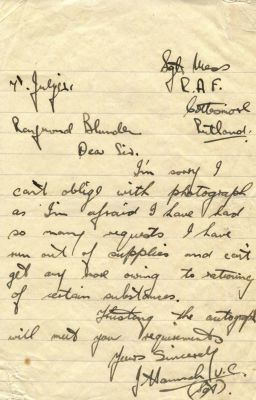 Sgts Mess
R.A.F.
Cottesmore
Rutland.
Raymond Blunden
Dear Sir.
I'm sorry I
can't oblige with photograph
as I'm afraid I have had
so many requests I have
run out of supplies and can't
get any more owing to rationing
of certain substances.
Trusting the autograph
will meet your requirements
Yours Sincerely
J Hannah V.C.
(Sgt).